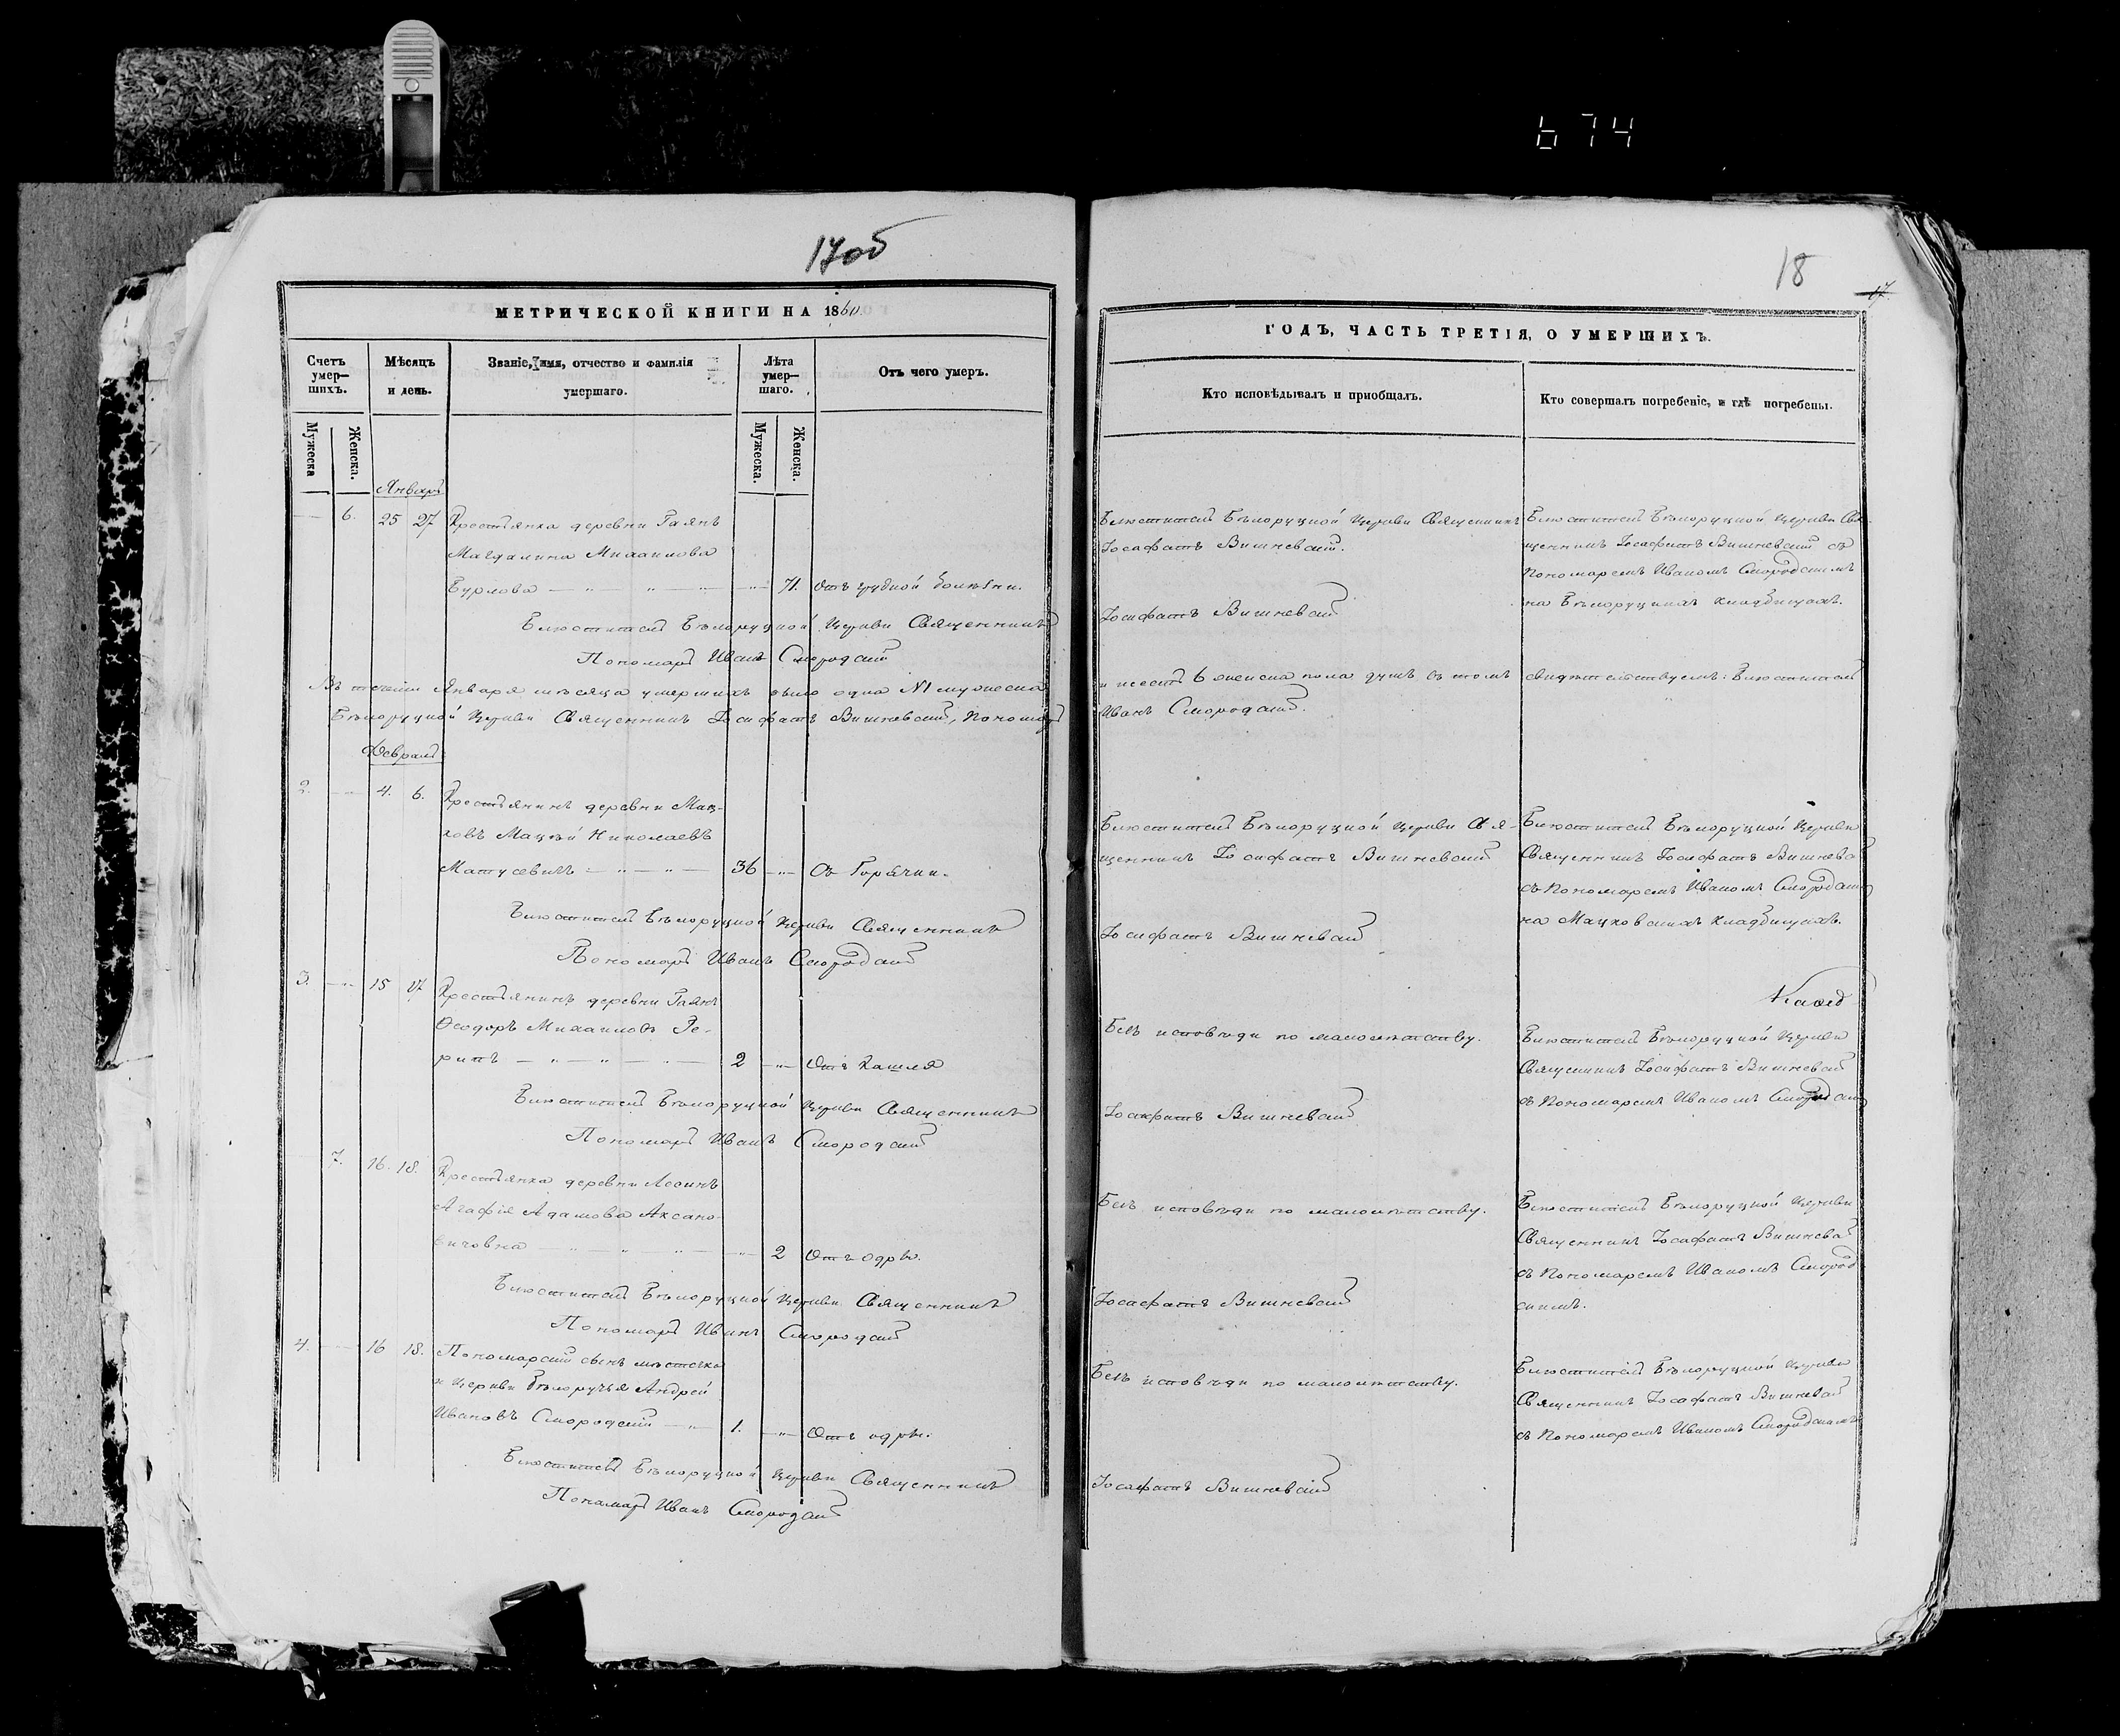 674
17об
18
17
МЕТРИЧЕСКОЙ КНИГИ НА 1860
ГОДЪ, ЧАСТЬ ТРЕТІЯ, О УМЕРШИХЪ.
Счетъ умер-шихъ.
Мѣсяцъ и день.
Званіе, имя, отчество и фамилія умершаго.
Лѣта умер-шаго.
Отъ чего умеръ.
Кто исповѣдывалъ и приобщалъ.
Кто совершалъ погребеніе, и гдѣ погребены.
Мужеска
Женска.
Мужеска.
Женска.
Январь
6. 25 27 Крестьянка деревни Гаянъ
Магдалина Михаилова
Бурлова 71. Отъ грудной болѣзни.
Блюститель Бѣлоруцкой Церкви Священникъ
Іосафатъ Вишневскій.
Блюститель Бѣлоруцкой Церкви Свя-
щенникъ Іосафатъ Вишневскій съ
Пономаремъ Иваномъ Смородскимъ
на Бѣлоруцкихъ кладбищахъ.
Блюститель Бѣлоруцкой Церкви Священникъ Іосафатъ Вишневскій
Пономарь Иванъ Смородскій
Въ теченіи Января мѣсяца умершихъ было одна №1 мужеска и шесть 6 женска пола душъ въ томъ свидѣтельствуемъ: Блюститель
Бѣлоруцкой Церкви Священникъ Іосафатъ Вишневскій, Пономарь Иванъ Смородскій.
Февраль
2. 4. 6. Крестьянинъ деревни Мац-
ковъ Мацѣй Николаевъ
Матусевичъ 36 Съ Горячки.
Блюститель Бѣлоруцкой Церкви Свя-
щенникъ Іосафатъ Вишневскій
Блюститель Бѣлоруцкой Церкви
Священникъ Іосафатъ Вишневскій
съ Пономаремъ Иваномъ Смородскимъ
на Мацковскихъ кладбищахъ.
Блюститель Бѣлоруцкой Церкви Священникъ Іосафатъ Вишневскій
Пономарь Иванъ Смородскій
3. 15 17 Крестьянинъ деревни Гаянъ
Ѳеодоръ Михаиловъ
2 Отъ Кашля
Безъ исповѣди по малолѣтству.
Блюститель Бѣлоруцкой Церкви
Священникъ Іосафатъ Вишневскій
съ Пономаремъ Иваномъ Смородскимъ
Блюститель Бѣлоруцкой Церкви Священникъ Іосафатъ Вишневскій
Пономарь Иванъ Смородскій
7. 16. 18. Крестьянка деревни
Агафія Адамова Аксано-
вичовна 2 Отъ одры.
Безъ исповѣди по малолѣтству.
Блюститель Бѣлоруцкой Церкви
Священникъ Іосафатъ Вишневскій
съ Пономаремъ Иваномъ Смород-
скимъ.
Блюститель Бѣлоруцкой Церкви Священникъ Іосафатъ Вишневскій
Пономарь Иванъ Смородскій
4. 16 18. Пономарскій сынъ мѣстечка
и Церкви Бѣлоручья Андрей
Ивановъ Смородскій 1. Отъ одры.
Безъ исповѣди по малолѣтству.
Блюститель Бѣлоруцкой Церкви
Священникъ Іосафатъ Вишневскій
съ Пономаремъ Иваномъ Смородскимъ
Блюститель Бѣлоруцкой Церкви Священникъ Іосафатъ Вишневскій
Пономарь Иванъ Смородскій